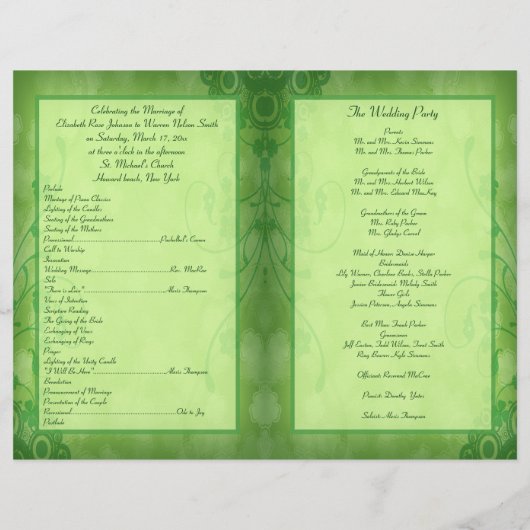 Celebrating the Marriage of
Elizabeth Rose Johnson to Warren Nelson Smith
on Saturday, March 17, 20xx
at three o'clock in the afternoon
St. Michael's Church
Howard beach, New York
Prelude
Montage of Piano Classics
Lighting of the Candles
Seating of the Grandmothers
Seating of the Mothers
Processional..............................Pachelbel's Canon
Call to Worship
Invocation
Wedding Message..............................Rev. MacRae
Solo
"There is Love"..............................Alexis Thompson
Vows of Intention
Scripture Reading
The Giving of the Bride
Exchanging of Vows
Exchanging of Rings
Prayer
Lighting of the Unity Candle
"I Will Be Here"..............................Alexis Thompson
Benediction
Pronouncement of Marriage
Presentation of the Couple
Recessional..............................Ode to Joy
Postlude
The Wedding Party
Parents
Mr. and Mrs. Kevin Simmons
Mr. and Mrs. Thomas Parker
Grandparents of the Bride
Mr. and Mrs. Herbert Wilson
Mr. and Mrs. Edward MacKay
Grandmothers of the Groom
Mrs. Ruby Parker
Mrs. Gladys Carrol
Maid of Honor: Denise Harper
Bridesmaids
Lily Warner, Charlene Banks, Stella Parker
Junior Bridesmaid: Melody Smith
Flower Girls
Jessica Peterson, Angela Simmons
Best Man: Frank Parker
Groomsmen
Jeff Easton, Todd Wilson, Trent Smith
Ring Bearer: Kyle Simmons
Officiant: Reverend McCrae
Pianist: Dorothy Yates
Soloist: Alexis Thompson